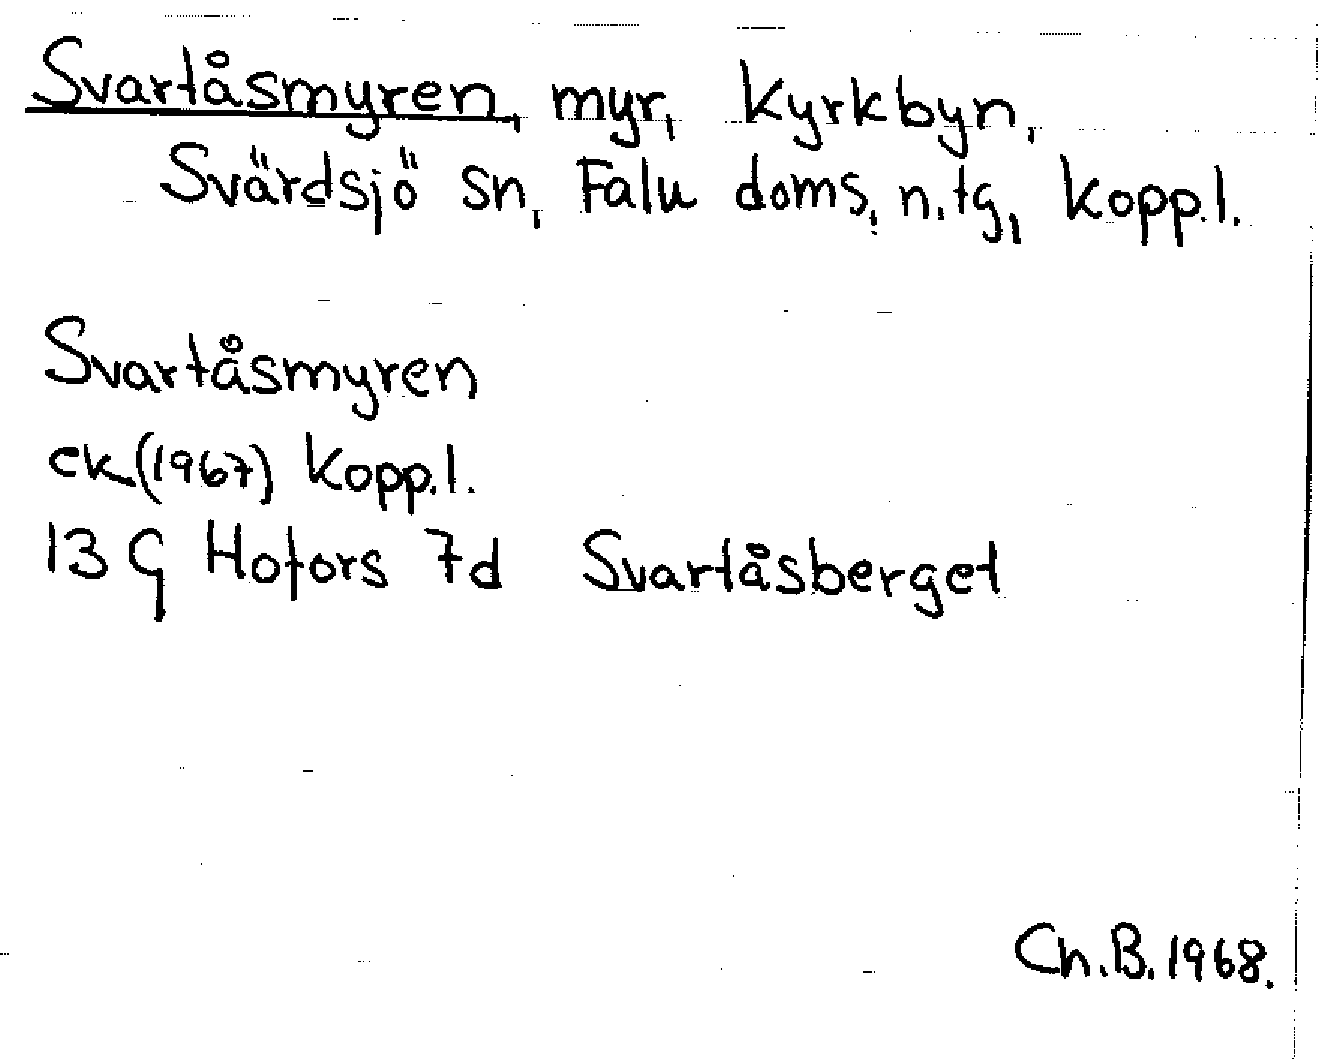 Svartåsmyren, myr, Kyrkbyn,
Svärdsjö sn, Falu doms, n.tg, Kopp.l.
Svartåsmyren
ek (1967) Kopp.l.
13 G Hofors 7d Svartåsberget
Ch.B. 1968.